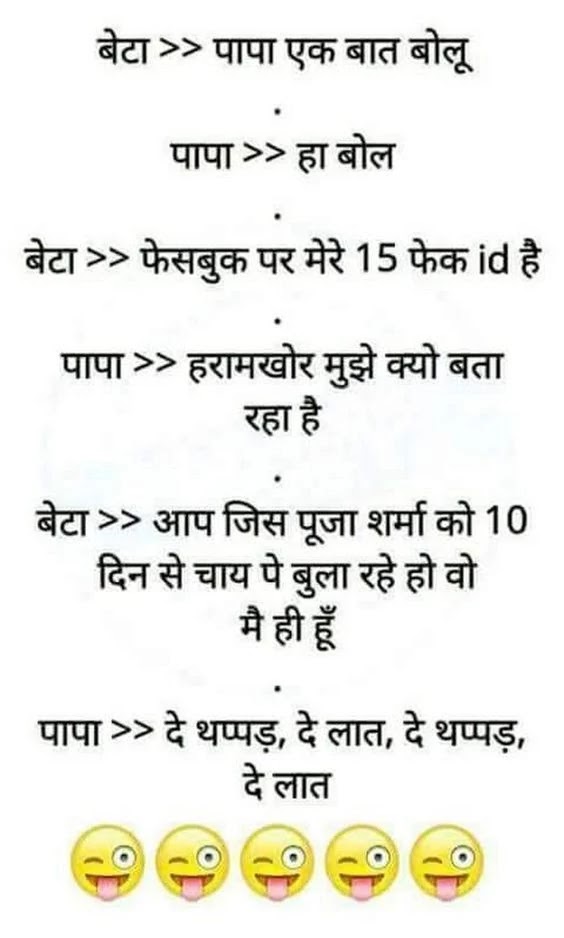 बेटा >> पापा एक बात बोलू
.
पापा >> हा बोल
.
बेटा >> फेसबुक पर मेरे 15 फेक id है
.
पापा >> हरामखोर मुझे क्यो बता
रहा है
.
बेटा >> आप जिस पूजा शर्मा को 10
दिन से चाय पे बुला रहे हो वो
मै ही हूँ
.
पापा >> दे थप्पड़, दे लात, दे थप्पड़,
दे लात